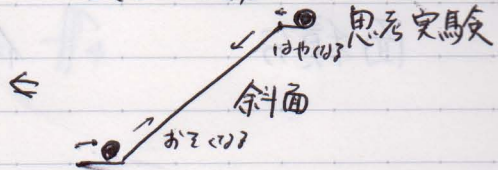 思考実験
はやくなる
斜面
おそくなる